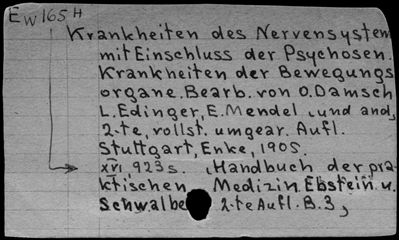 Ew 165 H
Krankheiten des Nervensystem
mit Einschluss der Psychosen.
Krankheiten der Bewegungs
organe. Bearb. von O. Damsch
L. Edinger, E. Mendel, und and,
2-te, vollst. umgear. Aufl.
Stuttgart, Enke, 1905.
XVI, 923 s. (Handbuch der pra
ktischen Medizin Ebstein u.
Schwalbe 2-te Aufl. B. 3,